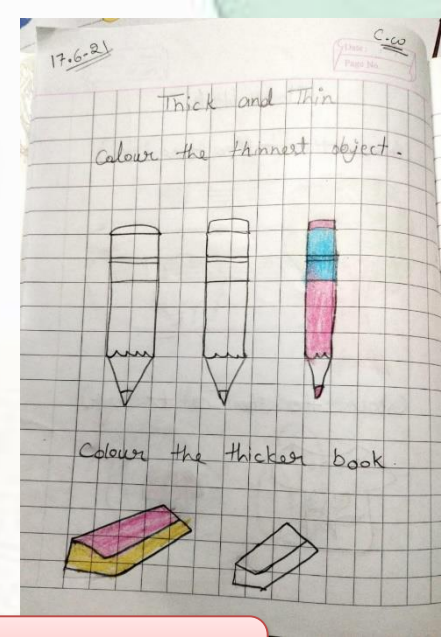 17.6-21
C.w
Date:
Page No.
Thick and Thin
Colour the thinnest object.
Colour the thicker book.